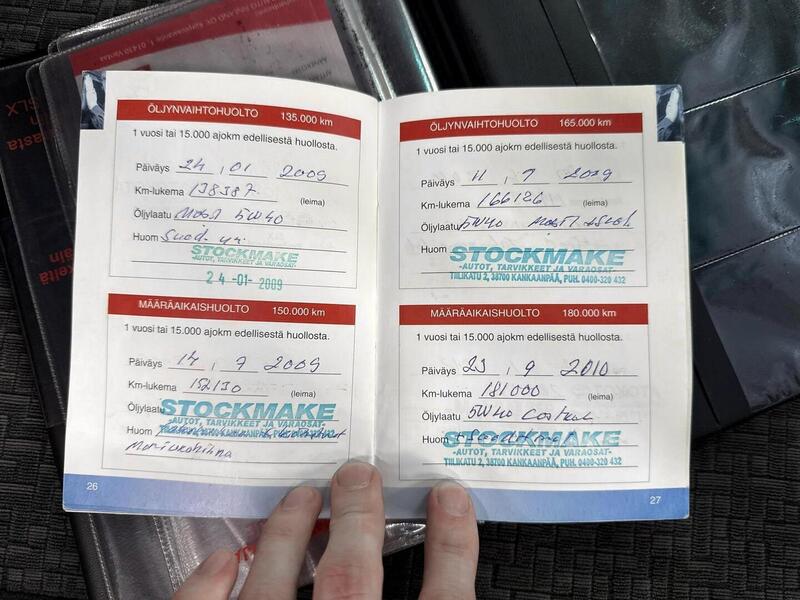 ÖLJYNVAIHTOHUOLTO 135.000 km
1 vuosi tai 15.000 ajokm edellisestä huollosta.
Päiväys 24 , 01 2009
Km-lukema 138387
(leima)
Öljylaatu Mobil 5W40
Huom Suod.
STOCKMAKE
-AUTOT, TARVIKKEET JA VARAOSAT-
24 -01- 2009
MÄÄRÄAIKAISHUOLTO 150.000 km
1 vuosi tai 15.000 ajokm edellisestä huollosta.
Päiväys 14 , 7 2009
Km-lukema 152130
(leima)
Öljylaatu
STOCKMAKE
-AUTOT, TARVIKKEET JA VARAOSAT-
TIILIKATU 2, 38700 KANKAANPÄÄ, PUH. 0400-320 432
Huom
26
ÖLJYNVAIHTOHUOLTO 165.000 km
1 vuosi tai 15.000 ajokm edellisestä huollosta.
Päiväys 11 , 9 2009
Km-lukema 166126
(leima)
Öljylaatu 5W40 Mobil
Huom
STOCKMAKE
-AUTOT, TARVIKKEET JA VARAOSAT-
TIILIKATU 2, 38700 KANKAANPÄÄ, PUH. 0400-320 432
MÄÄRÄAIKAISHUOLTO 180.000 km
1 vuosi tai 15.000 ajokm edellisestä huollosta.
Päiväys 23 , 9 2010
Km-lukema 181000
(leima)
Öljylaatu 5W40 Castrol
Huom
STOCKMAKE
-AUTOT, TARVIKKEET JA VARAOSAT-
TIILIKATU 2, 38700 KANKAANPÄÄ, PUH. 0400-320 432
27